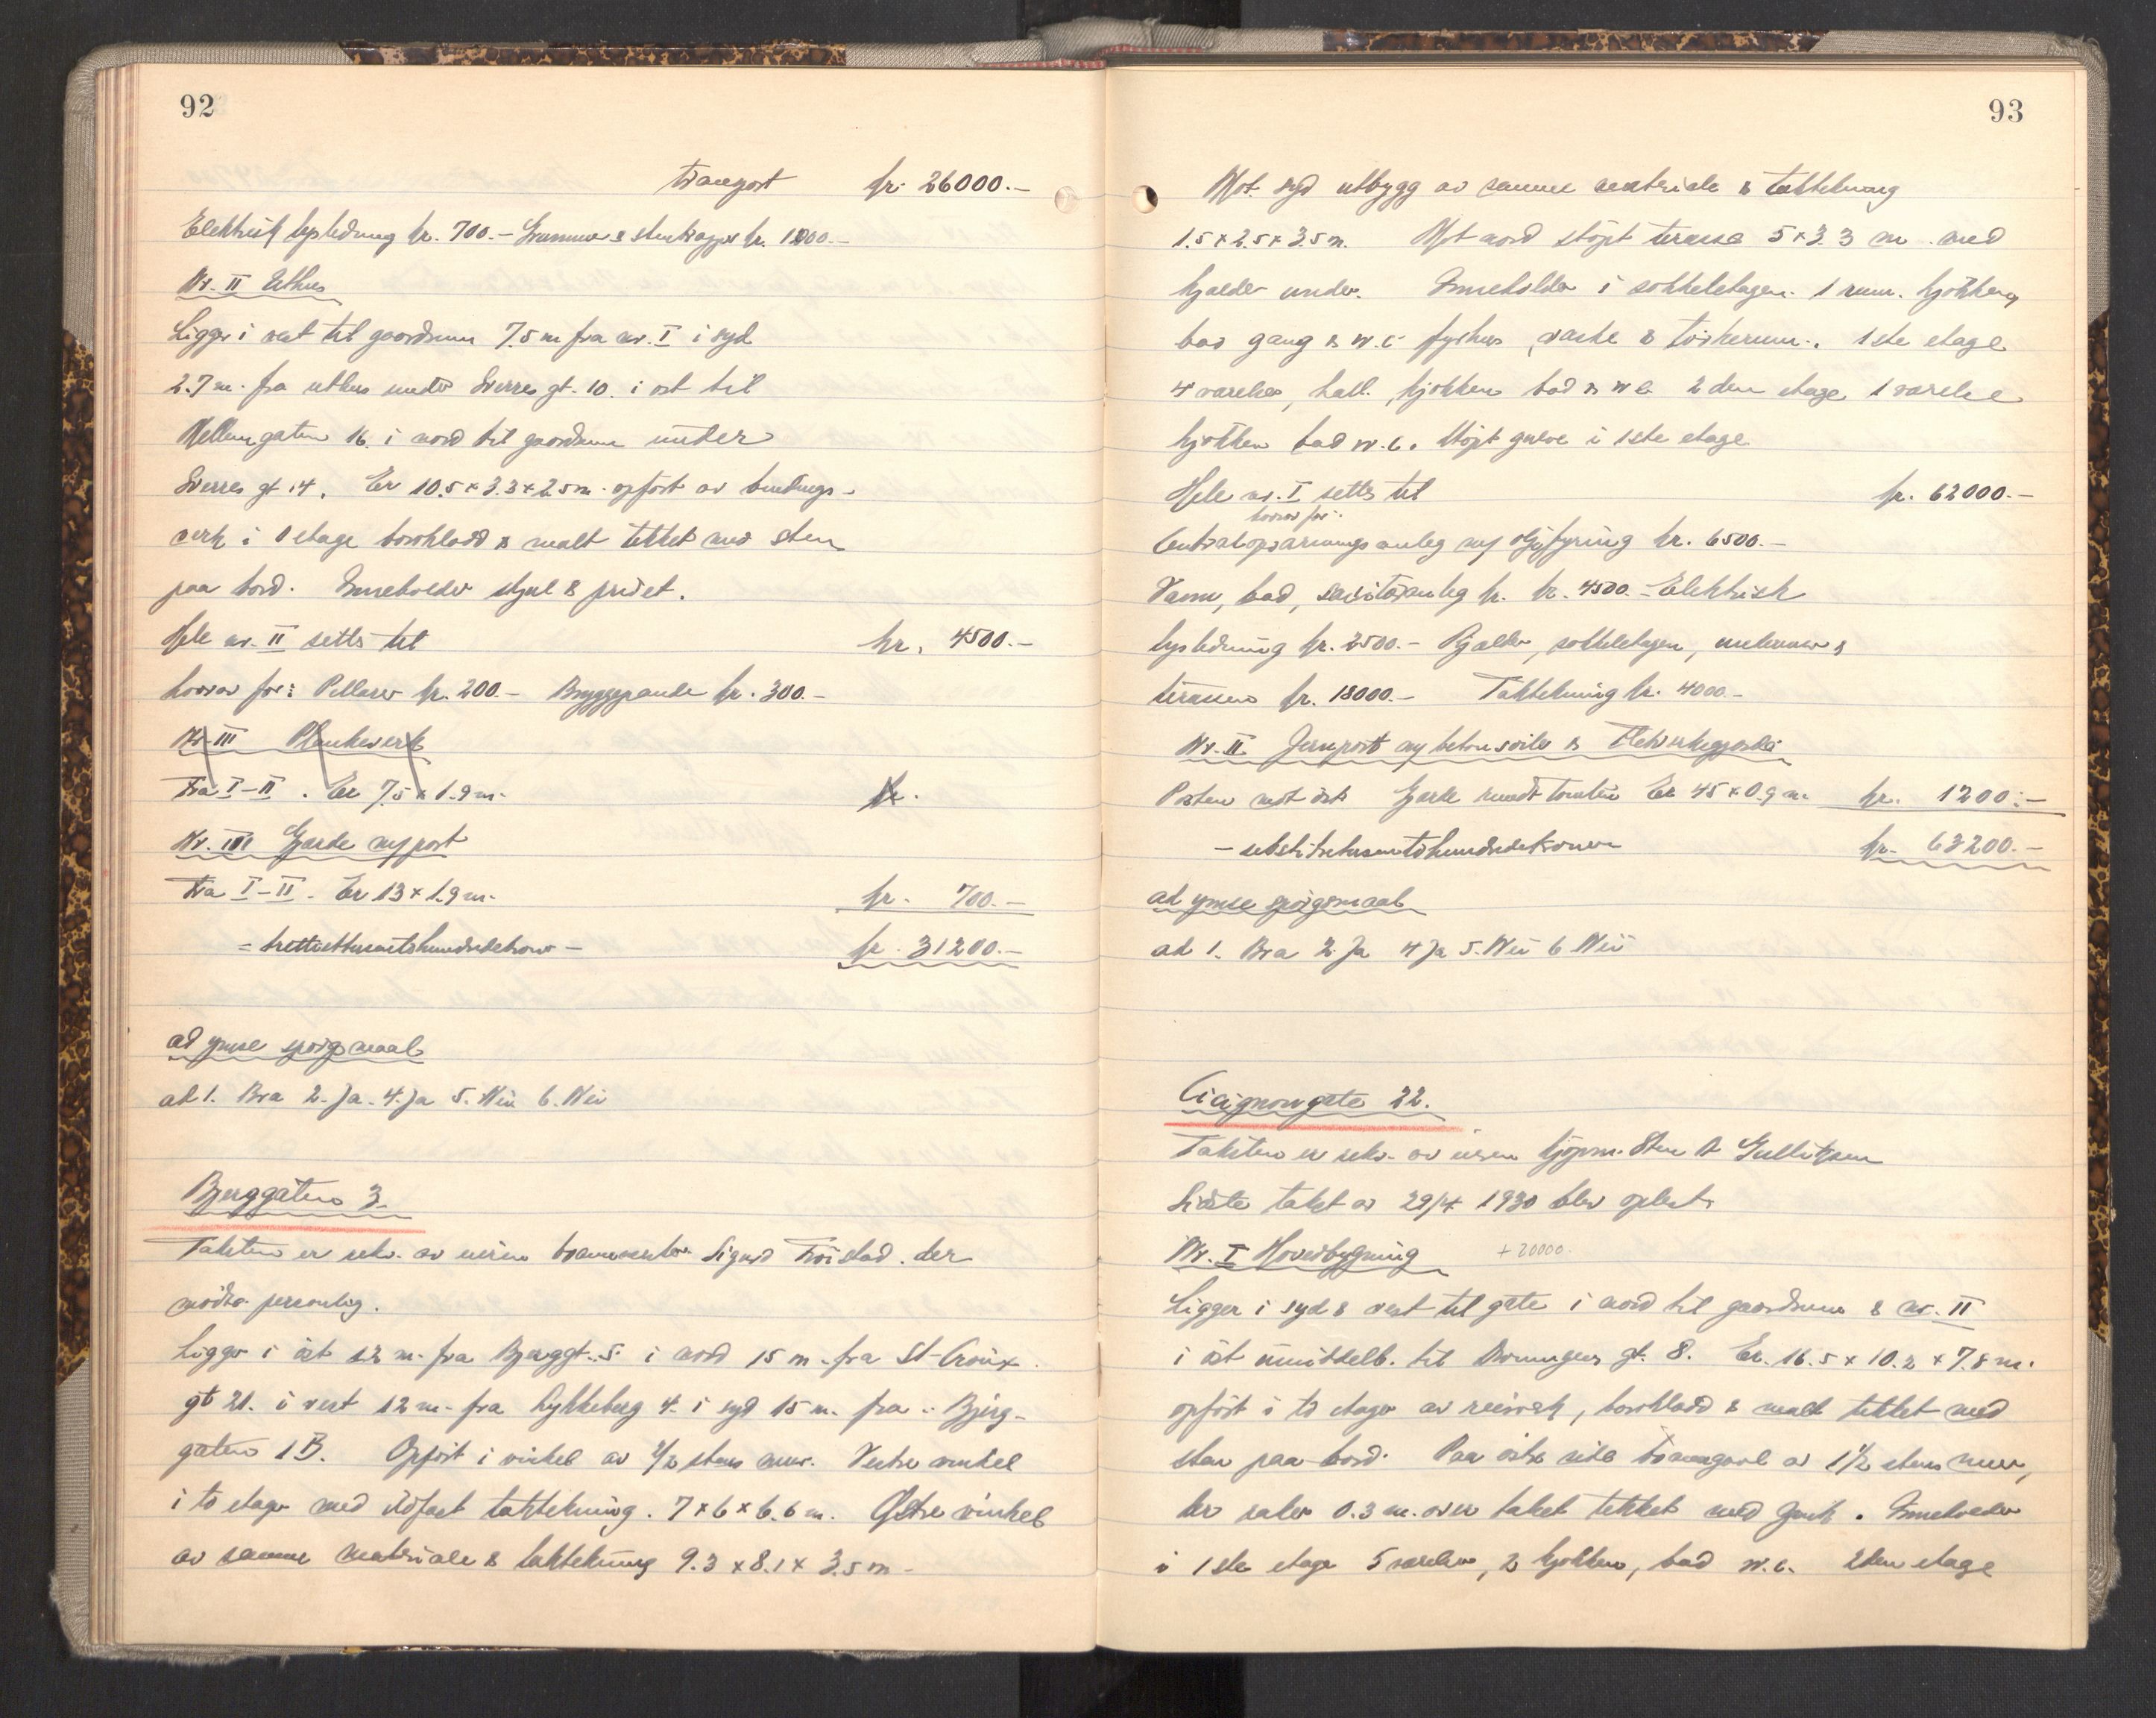 92
transport kr. 26000.-
Elektrisk lysledning kr. 700.- Grunmur & stentrapper kr. 1000.-
Nr. II Uthus
Ligger i vest til gaardsrum 7.5 m fra nr. I i syd
2.7 m. fra uthus under Sverres gt. 10. i øst til
Mellemgaten 16. i nord til gaardsrum under
Sverres gt 14. Er 10.5 x 3.3 x 2.5 m. opført av bindings-
verk i 1 etage bordkladd & malt tekket med sten
paa bord. Inneholder skjul & privet.
Hele nr. II settes til kr. 4500.-
hvorav for: Pillarer kr. 200.- Bryggepande kr. 300.-
Nr. III Plankeverk
Fra I-II. Er 7.5 x 1.9 m. kr.
Nr. III Gjerde m/port
Fra I-II. Er 13 x 1.9 m. kr. 700.-
= trettiettusentohundredekroner - kr. 31200.-
ad ymse spørgsmaal
ad 1. Bra 2. Ja. 4. Ja 5. Nei 6. Nei
Bjerggaten 3.
Taksten er rekv. av eieren brannmester Sigurd Frøistad. der
møtte personlig.
Ligger i øst 12 m. fra Bjerggt. 5. i nord 15 m. fra St-Croix
gt 21. i vest 12 m. fra Lykkeberg 4. i syd 15 m. fra Bjerg-
gaten 1 B. Opført i vinkel av 1/2 stens mur. Vestre vinkel
i to etager med ildfast taktekning. 7 x 6 x 6.6 m. Østre vinkel
av samme materiale & taktekning 9.3 x 8.1 x 3.5 m.
93
Mot syd utbygg av samme materiale & taktekning
1.5 x 2.5 x 3.5 m. Mot nord støpt terasse 5 x 3.3 m. med
kjælder under. Inneholder i sokkeletagen. 1 rum. kjøkken,
bad gang & w.c. fyrhus, vaske & tørkerum. 1ste etage
4 værelser, hall, kjøkken bad & w c 2den etage 1 værelse
kjøkken bad w.c. Støpt gulve i 1ste etage
Hele nr. I settes til kr. 62000.-
hvorav for:
Centralopvarmingsanleg m/ oljefyring kr. 6500.-
Vann, bad, sanitæranleg kr. 4500.- Elektrisk
lysledning kr. 2500.- Kjælder, sokkeletagen, undermur &
terassen kr. 18000.- Taktekning kr. 4000.-
Nr. II Jernport m/ betonsøiler & Fletverksgjerde
Porten mot øst. Gjerde rundt tomten Er 45 x 0.9 m. kr. 1200.-
- sekstitretusentohundredekroner kr. 63200.-
ad ymse spørgsmaal
ad 1. Bra 2. Ja 4 Ja 5. Nei 6 Nei
Cicignongate 22.
Taksten er rekv. av eieren kjøpm. Sten A Gulliksen
Sidste takst av 29/4 1930 blev oplest.
Nr. I Hovedbygning + 20000.
Ligger i syd & vest til gate i nord til gaardsrum & nr. II
i øst umiddelb. til Dronningens gt. 8. Er. 16.5 x 10.2 x 7.8 m.
opført i to etager av reisverk, bordkladd & malt tekket med
sten paa bord. Paa østre side branngavl av 1 1/2 stens mur,
der rager 0.3 m. over taket tekket med zink. Inneholder
i 1ste etage 5 værelser, 2 kjøkken, bad w.c. 2den etage